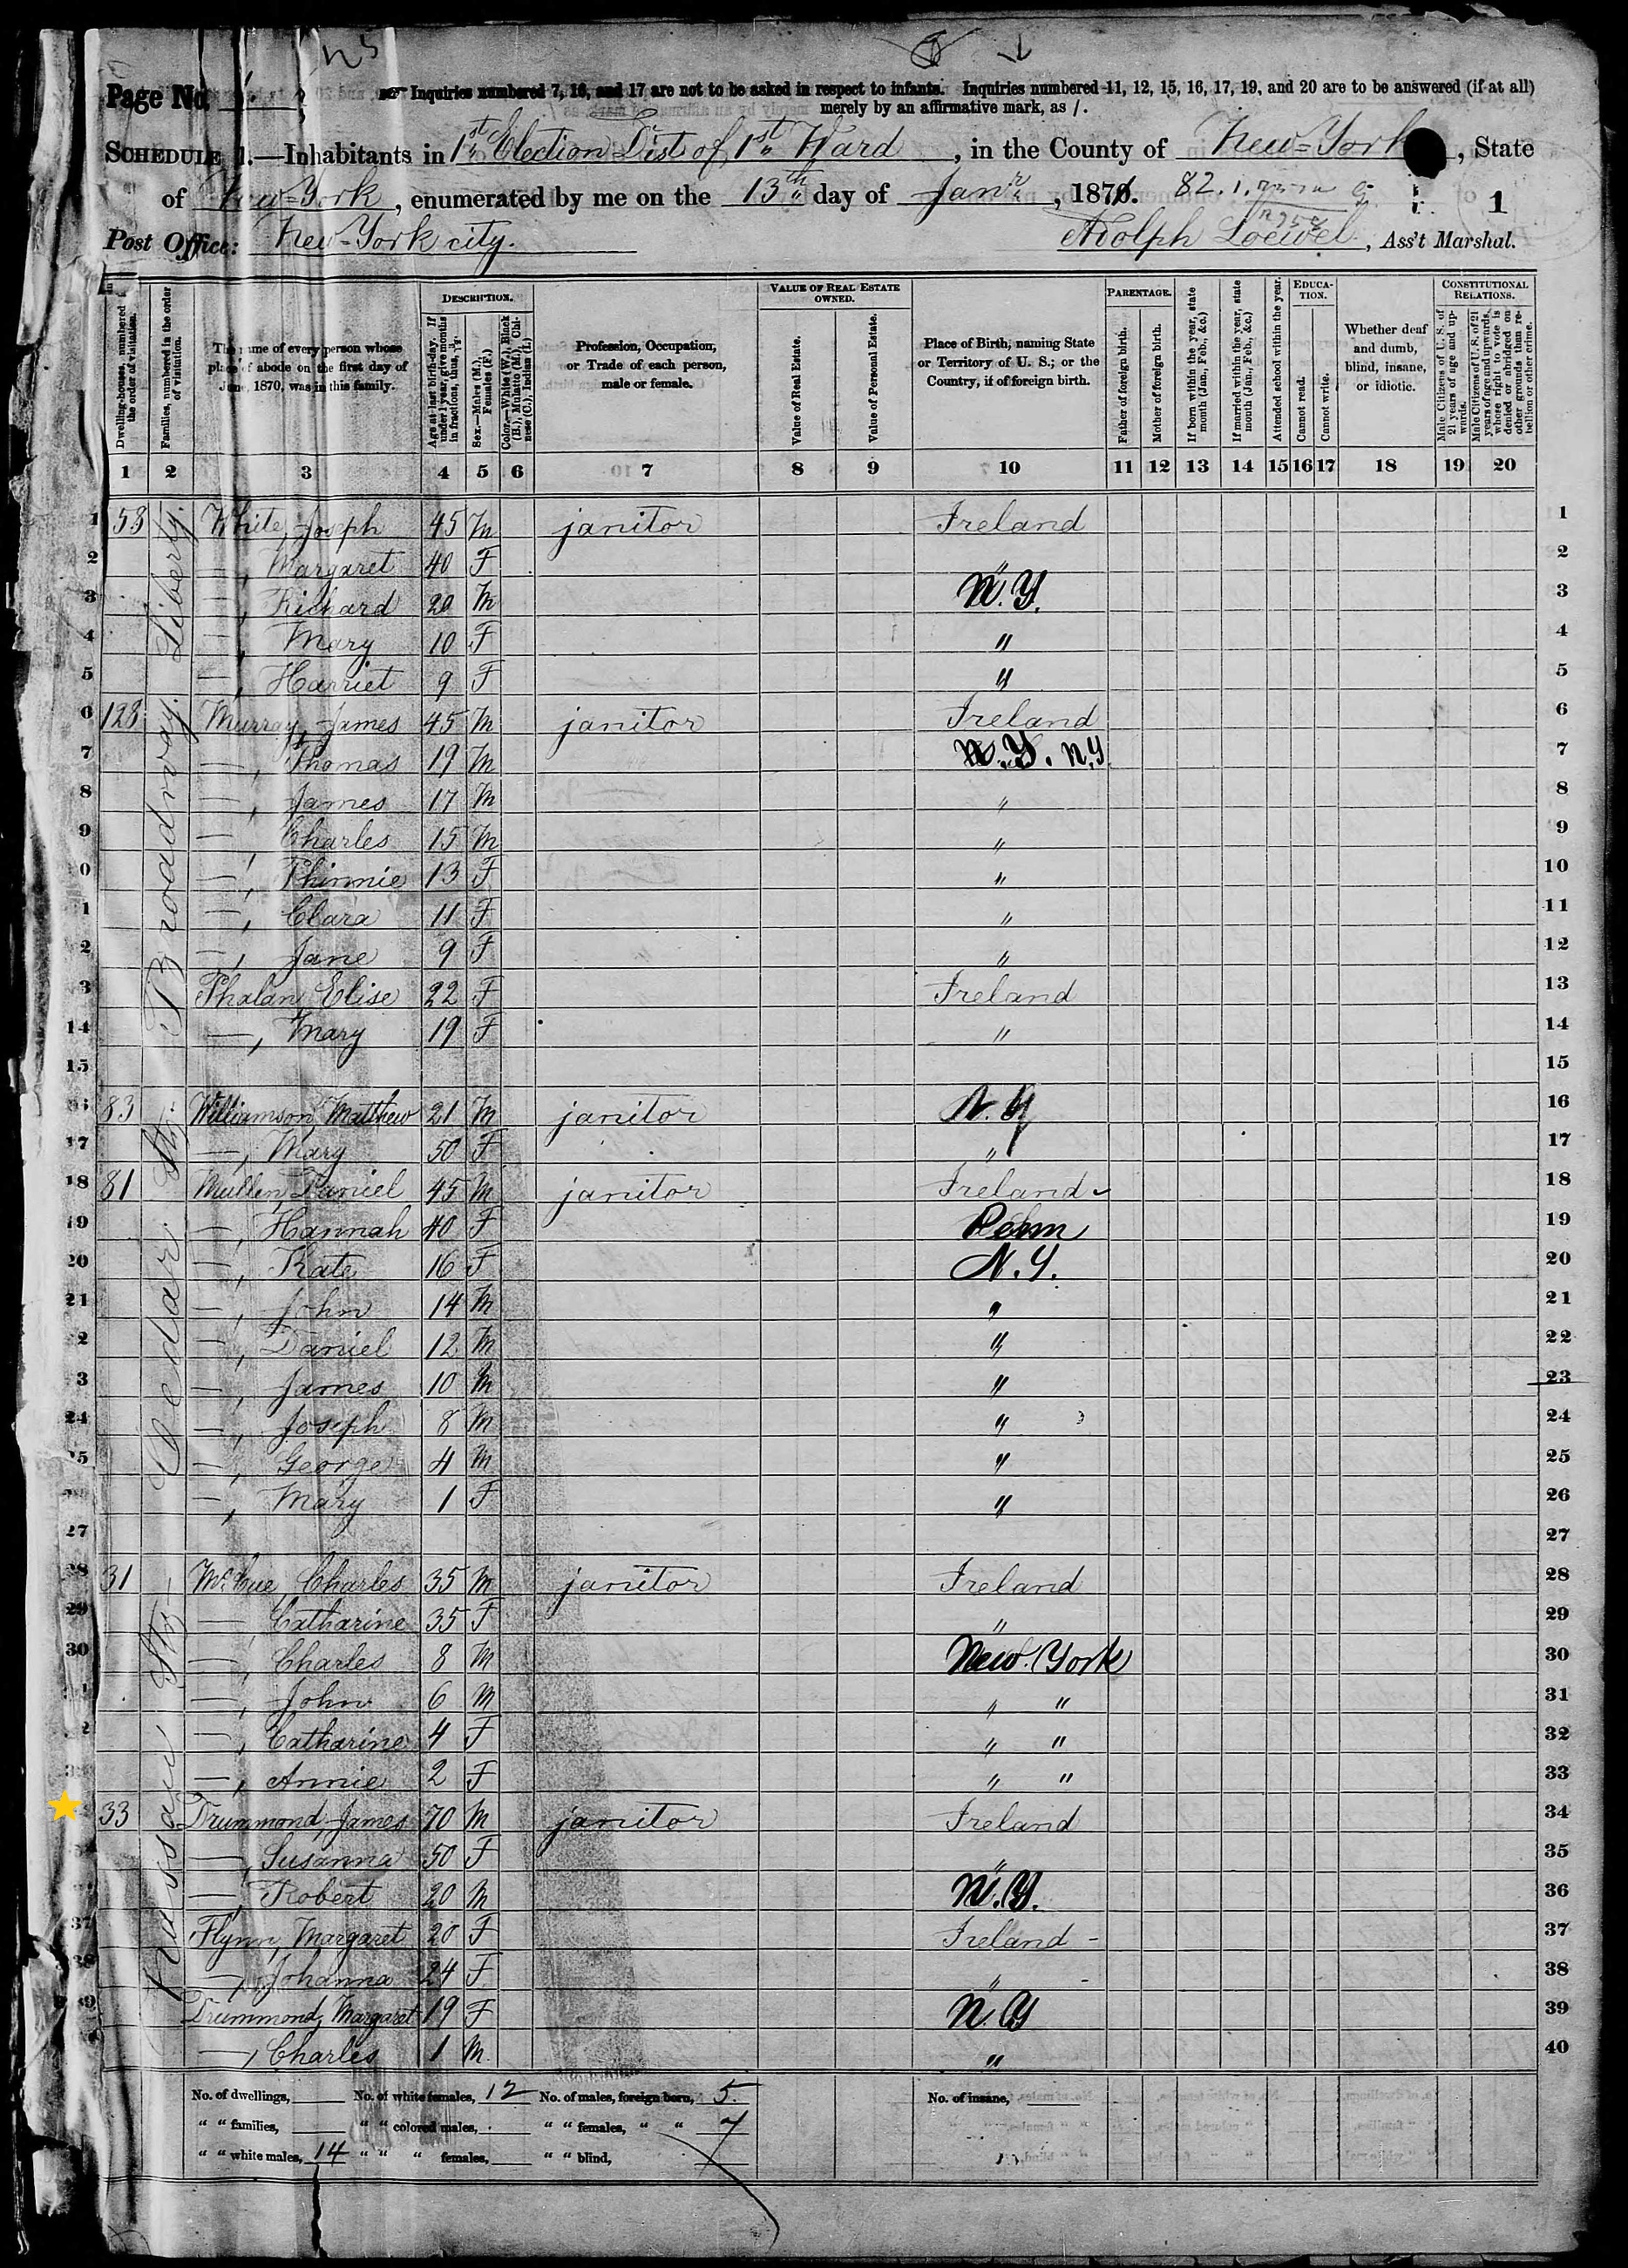 Page No. 1
Inquiries numbered 7, 16, and 17 are not to be asked in respect to infants. Inquiries numbered 11, 12, 15, 16, 17, 19, and 20 are to be answered (if at all)
merely by an affirmative mark, as /.
SCHEDULE 1.—Inhabitants in 1st Election Dist of 1st Ward, in the County of New=York, State
of New=York, enumerated by me on the 13th day of Janr, 1871.
1
Post Office: New-York city.
Adolph Loewel, Ass't Marshal.
Dwelling-houses, numbered in the order of visitation.
Families, numbered in the order of visitation.
The name of every person whose place of abode on the first day of June, 1870, was in this family.
DESCRIPTION.
Age at last birth-day. If under 1 year, give months in fractions, thus, 3/12.
Sex.—Males (M.), Females (F.)
Color.—White (W.), Black (B.), Mulatto (M.), Chinese (C.), Indian (I.)
Profession, Occupation, or Trade of each person, male or female.
VALUE OF REAL ESTATE OWNED.
Value of Real Estate.
Value of Personal Estate.
Place of Birth, naming State or Territory of U. S.; or the Country, if of foreign birth.
PARENTAGE.
Father of foreign birth.
Mother of foreign birth.
If born within the year, state month (Jan., Feb., &c.)
If married within the year, state month (Jan., Feb., &c.)
Attended school within the year.
EDUCATION.
Cannot read.
Cannot write.
Whether deaf and dumb, blind, insane, or idiotic.
CONSTITUTIONAL RELATIONS.
Male Citizens of U. S. of 21 years of age and upwards.
Male Citizens of U. S. of 21 years of age and upwards, whose right to vote is denied or abridged on other grounds than rebellion or other crime.
1 2 3 4 5 6 7 8 9 10 11 12 13 14 15 16 17 18 19 20
Liberty.
Broadway.
Cedar Str.
Nassau Str.
1 53 White, Joseph 45 M janitor Ireland 1
2 —, Margaret 40 F " 2
3 —, Richard 20 M N.Y. 3
4 —, Mary 10 F " 4
5 —, Harriet 9 F " 5
6 128 Murray, James 45 M janitor Ireland 6
7 —, Thomas 19 M N.Y. N.Y 7
8 —, James 17 M " 8
9 —, Charles 15 M " 9
0 —, Phinnie 13 F " 10
1 —, Clara 11 F " 11
2 —, Jane 9 F " 12
3 Phalan Elise 22 F Ireland 13
14 —, Mary 19 F " 14
15 15
83 Williamson, Matthew 21 M janitor N.Y 16
17 —, Mary 50 F " 17
18 81 Mullen, Daniel 45 M janitor Ireland 18
19 —, Hannah 40 F Penn 19
20 —, Kate 16 F N.Y. 20
21 —, John 14 M " 21
2 —, Daniel 12 M " 22
3 —, James 10 M " 23
24 —, Joseph 8 M " 24
25 —, George 4 M " 25
—, Mary 1 F " 26
27 27
28 31 McCue, Charles 35 M janitor Ireland 28
29 — Catharine 35 F " 29
30 —, Charles 8 M New York 30
—, John 6 M " " 31
2 —, Catharine 4 F " " 32
3 —, Annie 2 F " " 33
33 Drummond, James 70 M janitor Ireland 34
—, Susanna 50 F " 35
—, Robert 20 M N.Y. 36
37 Flynn, Margaret 20 F Ireland - 37
38 —, Johanna 24 F " - 38
39 Drummond, Margaret 19 F N.Y 39
—, Charles 1 M. " 40
No. of dwellings, No. of white females, 12 No. of males, foreign born, 5 No. of insane,
" " families, " " colored males, " " females, " " 7
" " white males, 14 " " " females, " " blind,